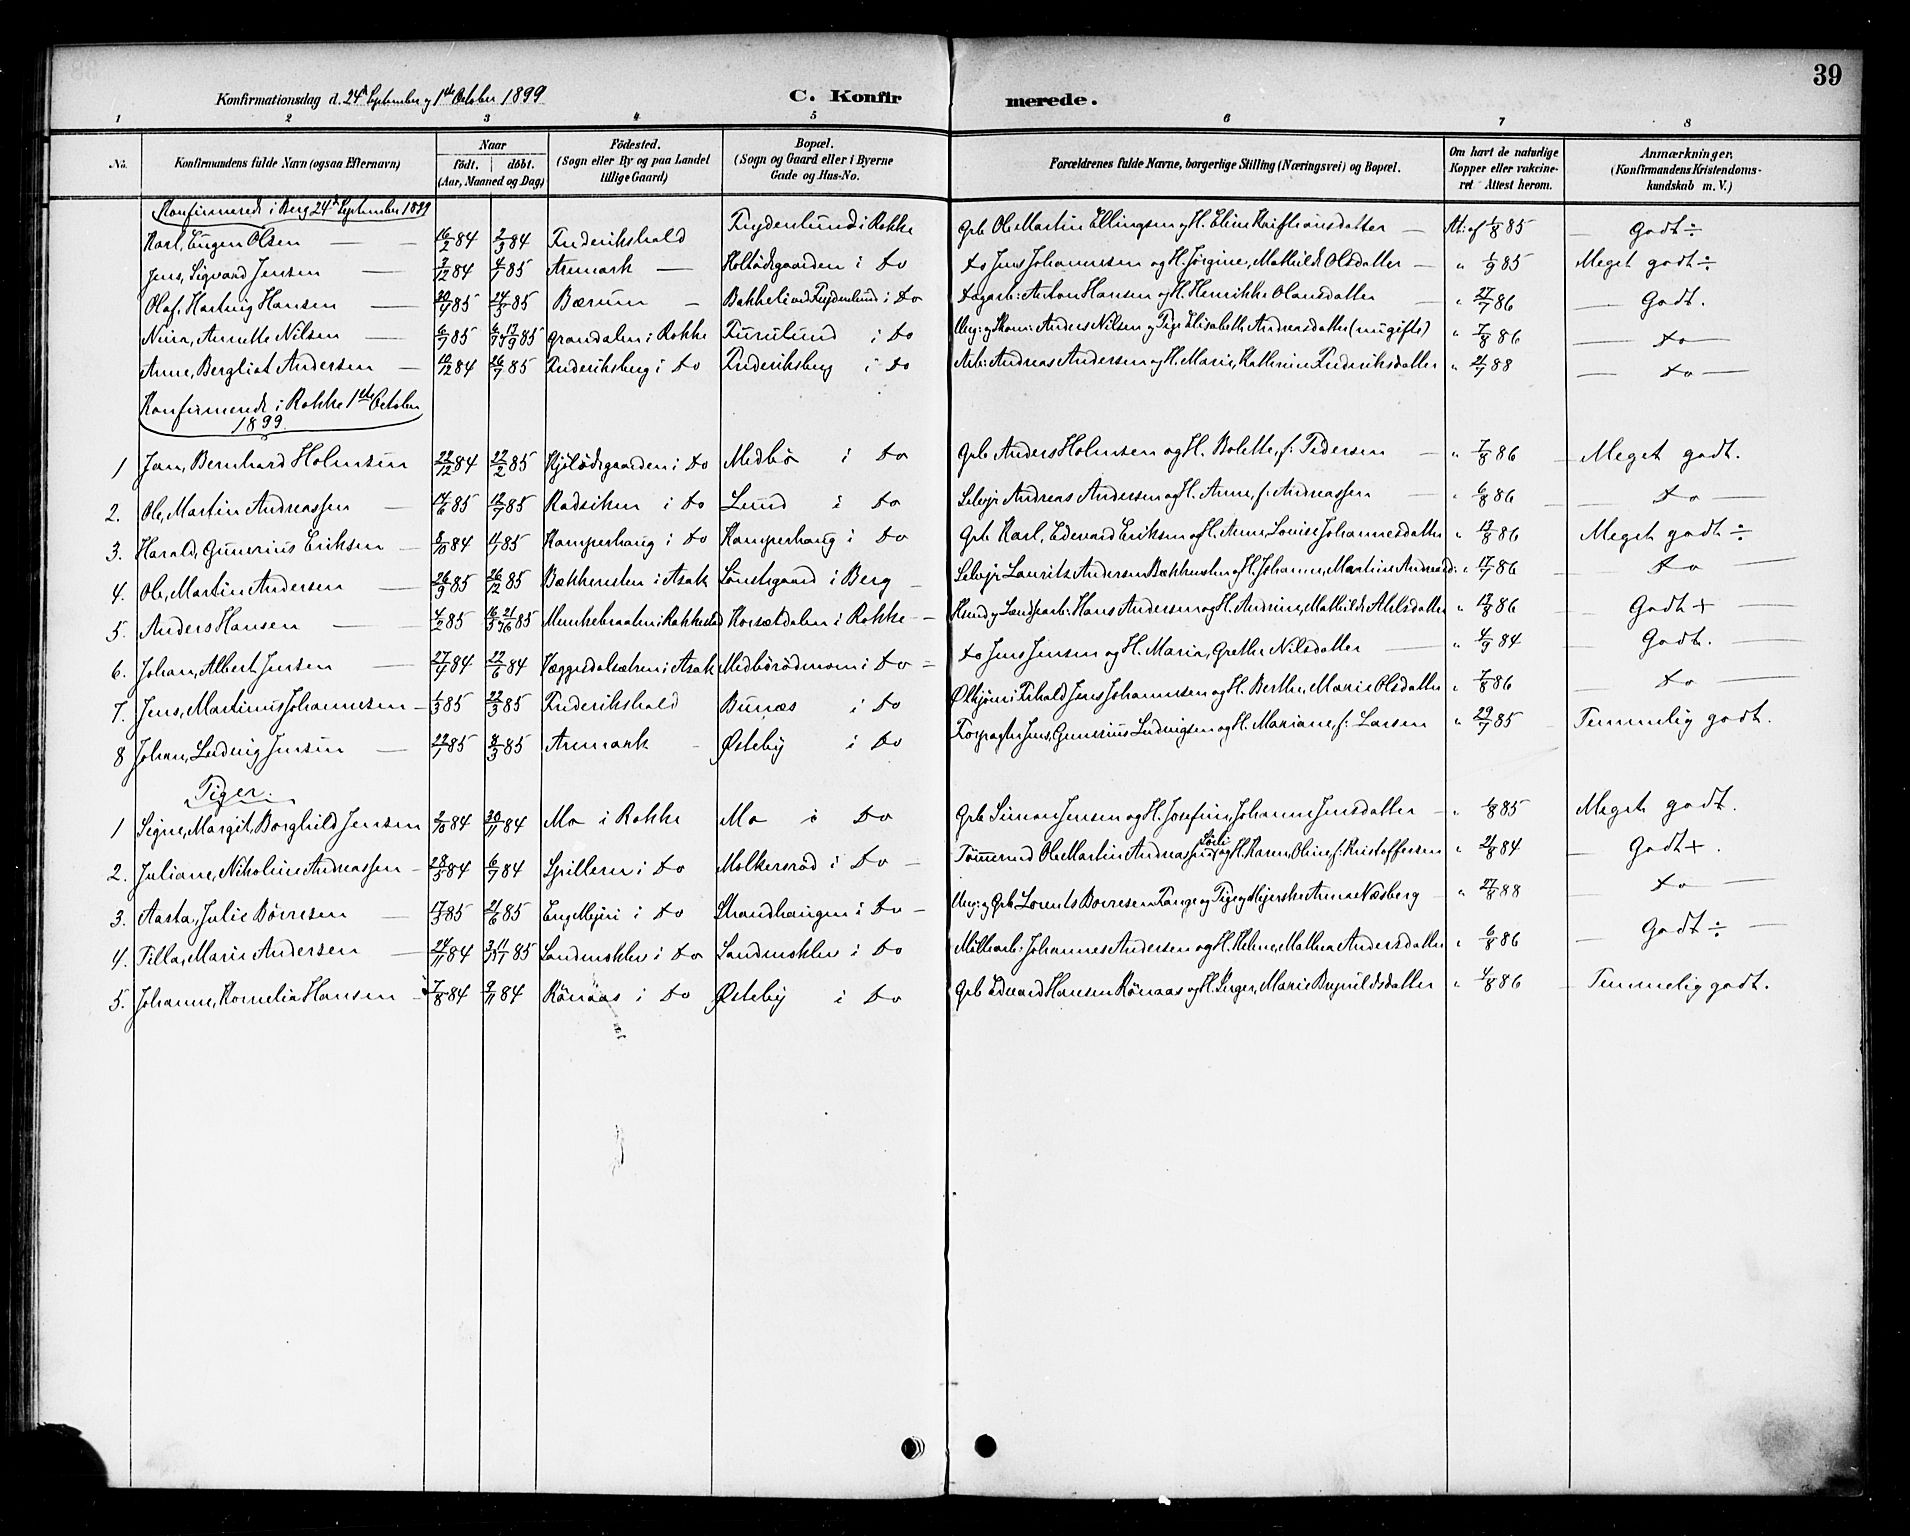 39
Konfirmationsdag d. 24de September og 1ste October 1899
C. Konfirmerede.
1 2 3 4 5 6 7 8
No.
Konfirmandens fulde Navn (ogsaa Efternavn)
Naar
födt. döbt.
(Aar, Maaned og Dag)
Födested.
(Sogn eller By og paa Landet
tillige Gaard)
Bopæl.
(Sogn og Gaard eller i Byerne
Gade og Hus-No.
Forældrenes fulde Navne, borgerlige Stilling (Næringsvei) og Bopæl.
Om havt de naturlige
Kopper eller vakcine-
ret Attest herom.
Anmærkninger.
(Konfirmandens Kristendoms-
kundskab m. V.)
Konfirmerede i Berg 24de September 1899
Karl, Eugen Olsen — 16/2 84 2/3 84 Frederikshald Frydenlund i Rokke Grb. Ole Martin Ellingsen og H. Eline Kristiansdatter — At: af 1/8 85 — Godt ÷
Jens, Sigvard Jensen — 7/12 84 4/1 85 Aremark — Holtödegaarden i Do Do Jens Johannesen og H. Jörgine, Mathilde Olsdatter — " 1/9 85 Meget godt ÷
Olaf, Hartvig Hansen — 20/1 85 24/5 85 Bærum — Bakkeli ved Frydenlund i Do Dagarb: Anton Hansen og H. Henrikke Olausdatter — " 27/7 86 — Godt.
Nina, Annette Nilsen — 6/7 85 6/7 17/9 85 Grandalen i Rokke Furulund i Do Ung: og Skom: Anders Nilsen og Pige Elisabeth Andreasdatter (nu gifte) " 7/8 86 — Do —
Anne, Bergliot Andersen — 10/12 84 26/7 85 Frederiksberg i Do Frederiksberg i Do Arb: Andreas Andersen og H. Marie, Kathrine Frederiksdatter " 2/7 88 — Do —
Konfirmerede i Rokke 1ste October
1899.
1 Jan, Bernhard Holmsen 22/12 84 22/2 85 Hjilödegaarden i Do Medbö i Do Grb Anders Holmsen og H. Bolette, f: Pedersen — " 7/8 86 — Meget godt.
2. Ole, Martin Andreassen — 14/6 85 12/7 85 Rødsiken i Do Lund i Do Selvejr Andreas Andersen og H. Anne, f: Andreassen — " 6/8 86 — Do —
3. Harald, Gunerius Eriksen — 8/10 84 4/1 85 Kamperhaug i Do Kamperhaug i Do Grb Karl, Edevard Eriksen og H. Anne, Lovise Johannesdatter " 12/8 86 Meget godt ÷
4. Ole, Martin Andersen — 26/9 85 26/12 85 Bækkevolen i Asak Lönetsgaard i Berg — Selvejr Lauritz Andersen Bækkevolen og H. Johanne, Martine Andreasd: " 17/7 86 — Do —
5. Anders Hansen — 4/2 85 16/5 21/6 85 Munkebraaten i Rakkestad Korsetdalen i Rokke — Hans Andersen og H. Andrine, Mathilde Abelsdatter " 12/8 86 Godt + —
6. Johan, Albert Jensen — 27/4 84 22/6 84 Væggedalsætren i Asak Medbörödmoen i Do — Do Jens Jensen og H. Maria, Grethe Nilsdatter — " 4/9 84 Godt. —
7. Jens, Martinus Johannesen — 1/3 85 22/3 85 Frederikshald Bunæs i Do Ölkjör: i Frhald Jens Johannesen og H. Berthe, Marie Olsdatter " 7/8 86 — Do —
8 Johan, Ludvig Jensen — 22/1 85 8/3 85 Aremark — Østeby i Do Forpagter Jens, Gunerius Ludvigsen og H. Mariane, f: Larsen " 29/7 85 — Temmelig godt.
Piger.
1 Signe, Margit, Borghild Jensen 2/10 84 30/11 84 Mo i Rokke Mo i Do Grb Simon Jensen og H. Josefine, Johanne Jensdatter — " 1/8 85 Meget godt.
2. Juliane, Nikoline Andreassen — 28/5 84 6/7 84 Spilleren i Do Molkersröd i Do — Tömmermd Ole Martin Andreassen Sörli og H. Karen, Oline, f: Kristoffersen " 2/8 84 — Godt + .
3. Aasta, Julie Börresen — 17/3 85 21/6 85 Eng Mejeri i Do Strandhaugen i Do — Ung: og Grb. Lorents Börresen Fange og Pige og Mejerske Anna Næsberg — " 27/8 88 — Do —
4. Tilla, Marie Andersen — 24/11 84 11/1 85 Sandmoklev i Do Sandmoklev i Do Möllearb: Johannes Andersen og H. Helene, Mathea Andersdatter " 6/8 86 — Godt ÷ —
5. Johanne, Kornelia Hansen — 7/8 84 9/11 84 Rönaas i Do Østeby i Do Grb Edevard Hansen Rönaas og H. Inger, Marie Brynildsdatter " 4/8 86 — Temmelig godt.